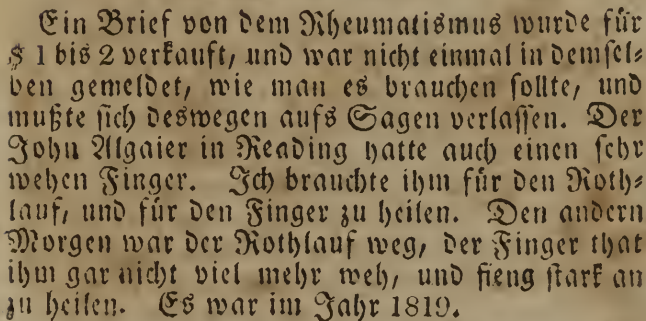 Ein Brief von dem Rheumatismus wurde für
$ 1 bis 2 verkauft, und war nicht einmal in demsel⸗
ben gemeldet, wie man es brauchen sollte, und
mußte sich deswegen aufs Sagen verlassen. Der
John Algaier in Reading hatte auch einen sehr
wehen Finger. Ich brauchte ihm für den Roth⸗
lauf, und für den Finger zu heilen. Den andern
Morgen war der Rothlauf weg, der Finger that
ihm gar nicht viel mehr weh, und fieng stark an
zu heilen. Es war im Jahr 1819.